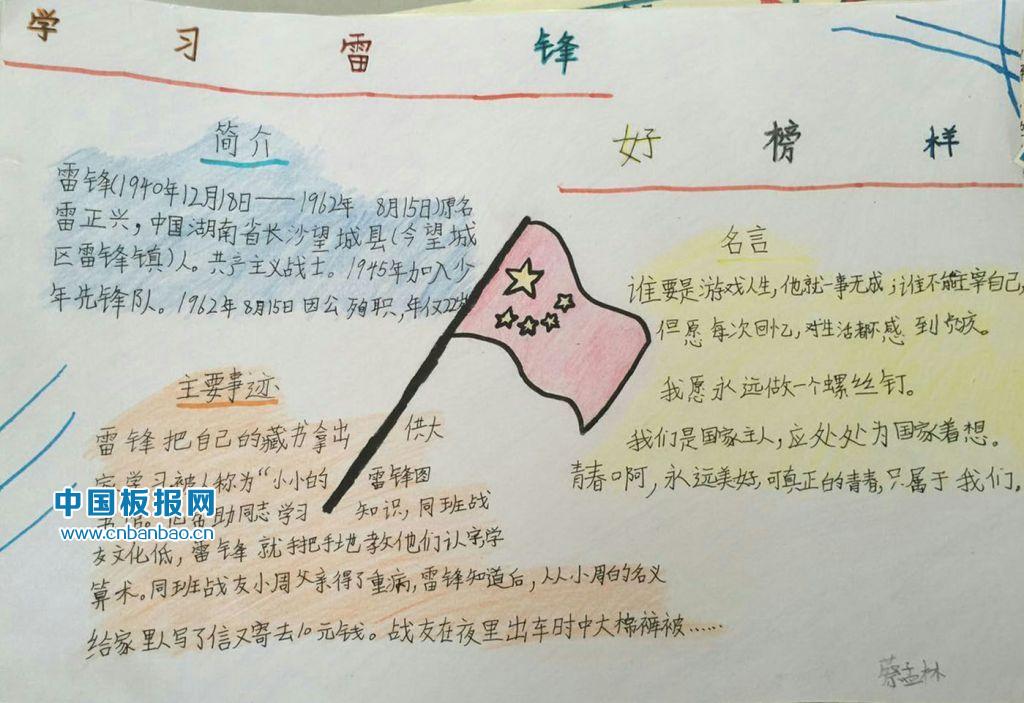 学 习 雷 锋
好 榜 样
简介
雷锋(1940年12月18日——1962年 8月15日)原名
雷正兴,中国湖南省长沙望城县(今望城
区雷锋镇)人。共产主义战士。1945年加入少
年先锋队。1962年8月15日因公殉职,年仅22岁
名言
谁要是游戏人生,他就一事无成;谁不能主宰自己,
但愿每次回忆,对生活都不感到负疚。
我愿永远做一个螺丝钉。
我们是国家主人,应处处为国家着想。
青春啊,永远美好,可真正的青春,只属于我们。
主要事迹
雷锋把自己的藏书拿出 供大
家学习被人称为“小小的 雷锋图
助同志学习 知识,同班战
友文化低,雷锋就手把手地教他们认字学
算术。同班战友小周父亲得了重病,雷锋知道后,从小周的名义
给家里人写了信又寄去10元钱。战友在夜里出车时中大棉裤被……
中国板报网
www.cnbanbao.cn
蔡孟林